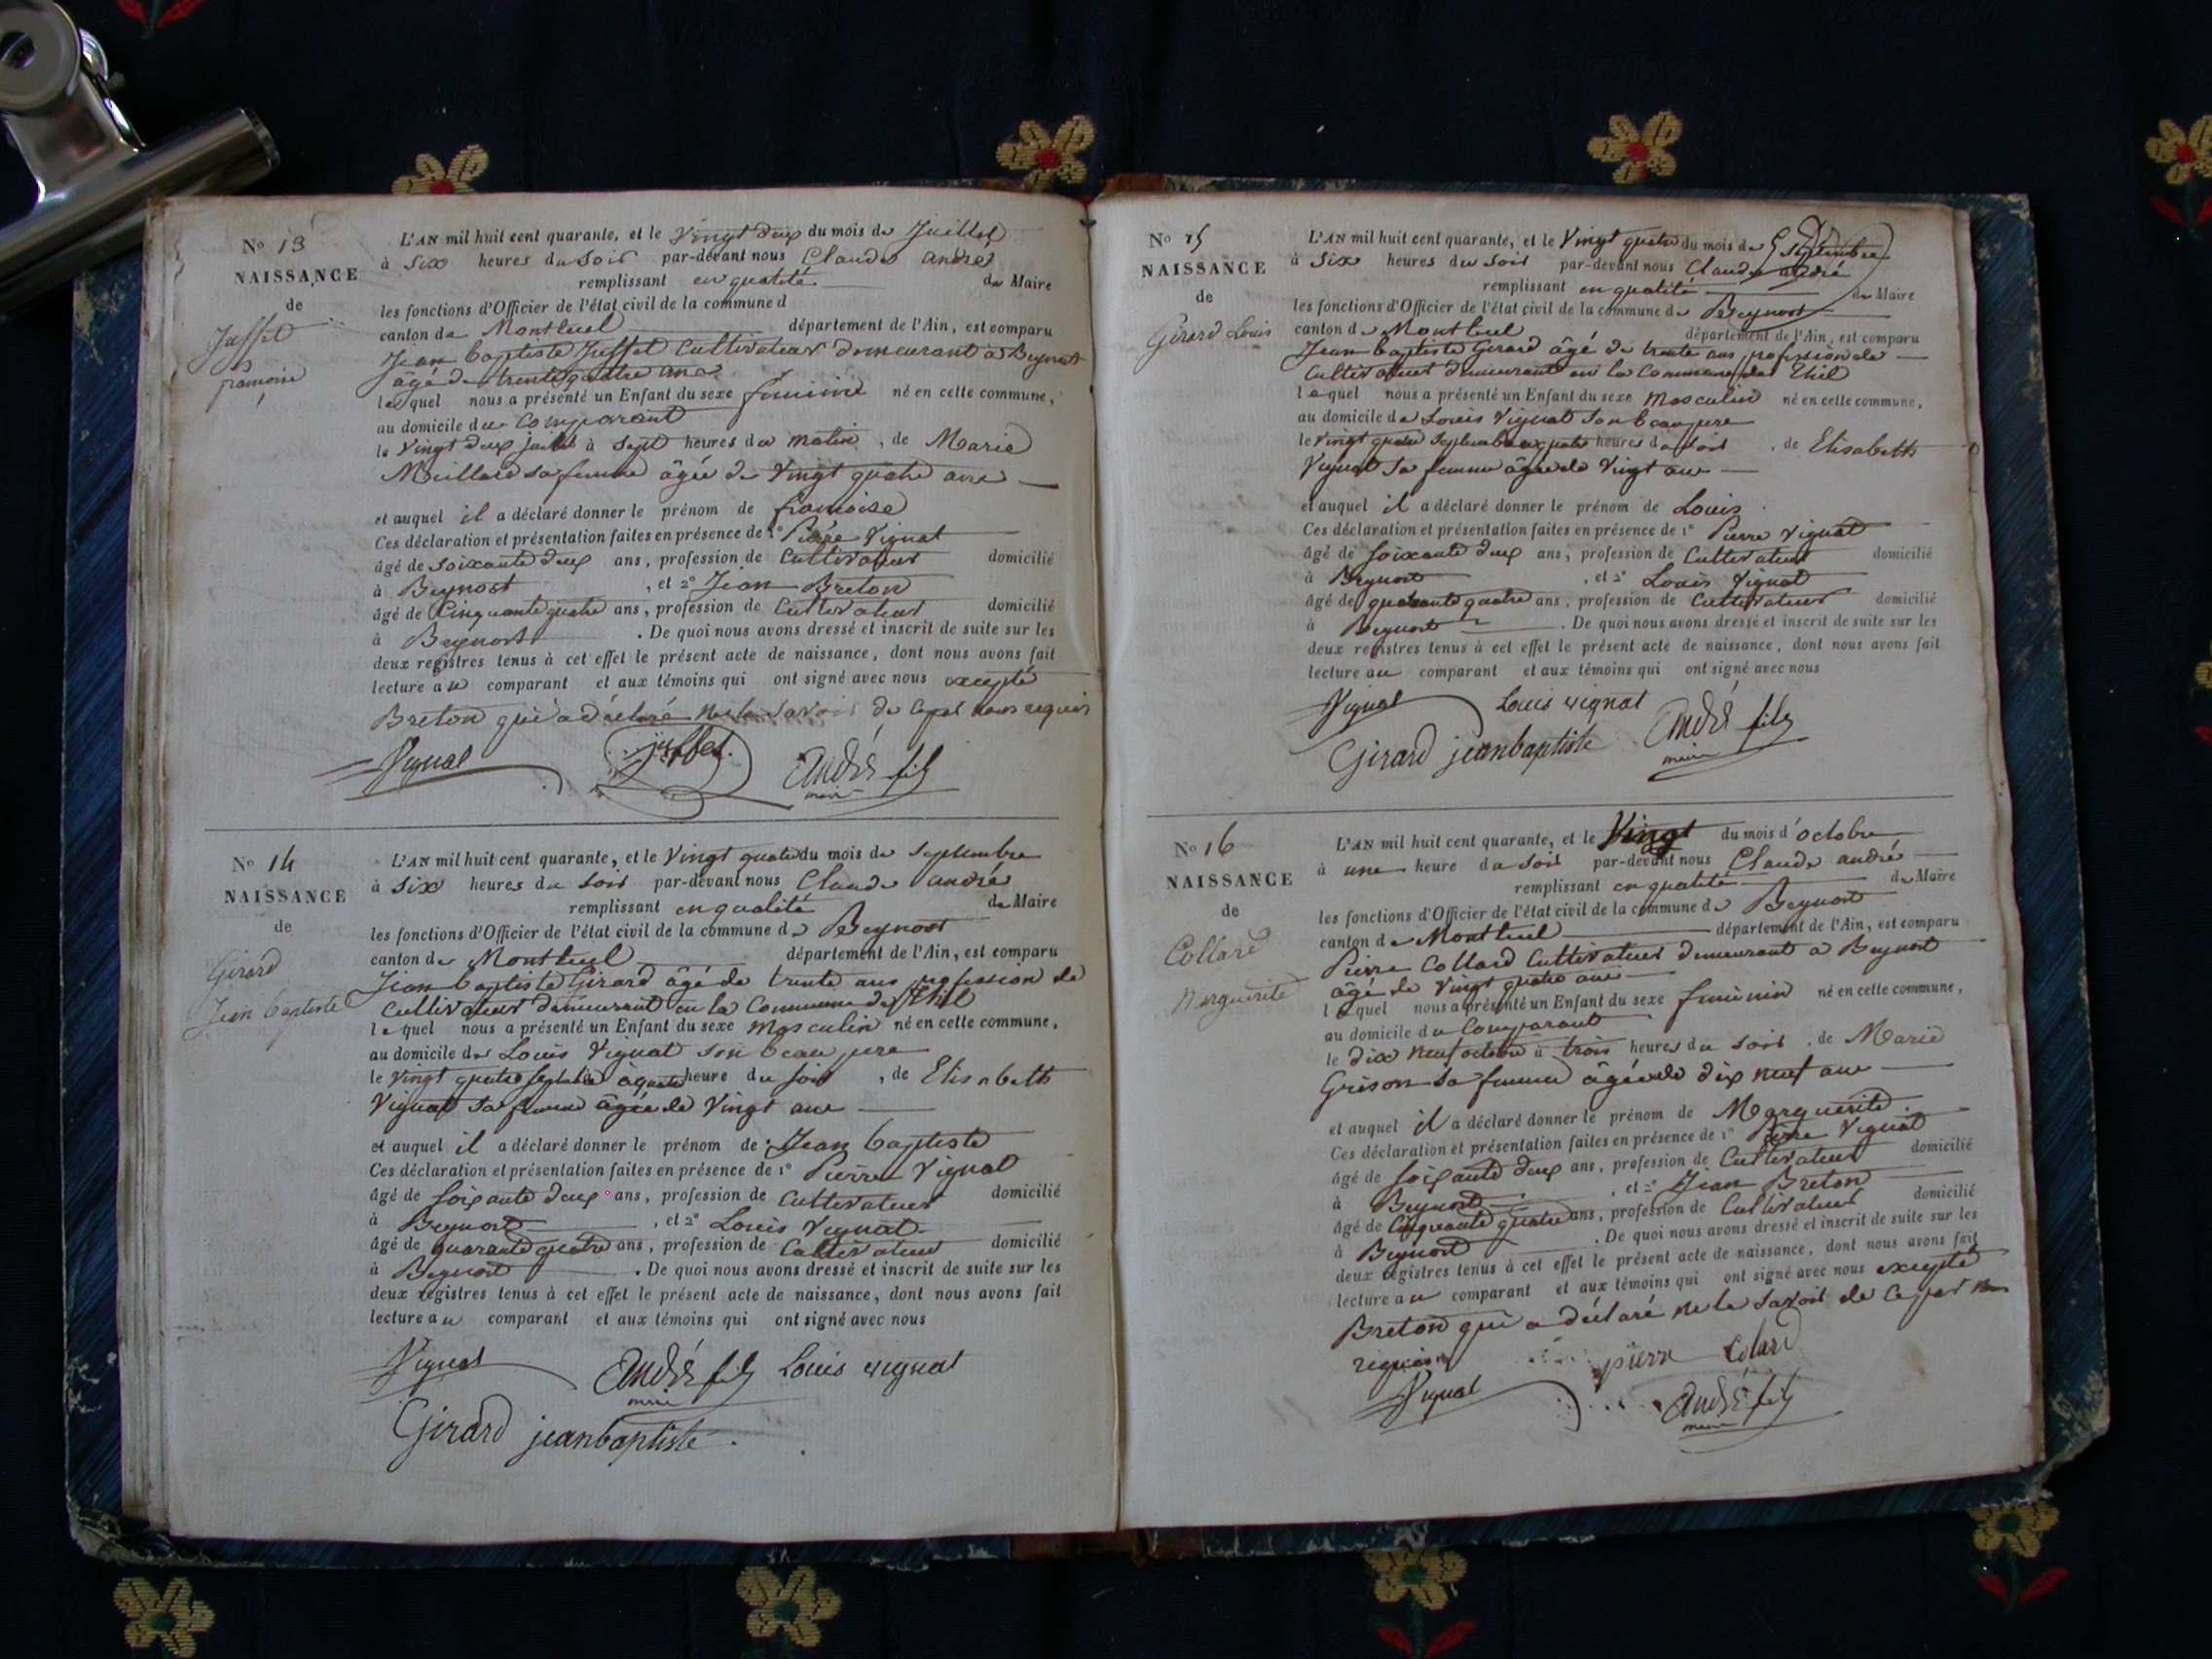 No 13
NAISSANCE
de
Juffet
francoise
L'AN mil huit cent quarante, et le Vingt deux du mois de Juillet
à Six heures du Soir par-devant nous Claude andré
remplissant en qualité de Maire
les fonctions d'Officier de l'état civil de la commune d
canton de Montluel département de l'Ain, est comparu
Jean baptiste Juffet Cultivateur demeurant à Beynost
âgé de trente quatre ans
lequel nous a présenté un Enfant du sexe feminin né en cette commune,
au domicile du Comparant
le Vingt deux juillet à Sept heures du matin, de Marie
sa femme âgée de Vingt quatre ans
et auquel il a déclaré donner le prénom de francoise
Ces déclaration et présentation faites en présence de 1° Pierre Vignat
âgé de Soixante deux ans, profession de Cultivateur domicilié
à Beynost, et 2° Jean Breton
âgé de Cinquante quatre ans, profession de Cultivateur domicilié
à Beynost. De quoi nous avons dressé et inscrit de suite sur les
deux registres tenus à cet effet le présent acte de naissance, dont nous avons fait
lecture au comparant et aux témoins qui ont signé avec nous excepté
Breton qui a déclaré ne le Savoir de ce par nous requis
Vignat juffet André fils
maire
No 14
NAISSANCE
de
Girard
Jean baptiste
L'AN mil huit cent quarante, et le Vingt quatre du mois de Septembre
à Six heures du Soir par-devant nous Claude andré
remplissant en qualité de Maire
les fonctions d'Officier de l'état civil de la commune de Beynost
canton de Montluel département de l'Ain, est comparu
Jean baptiste Girard âgé de trente ans profession de
Cultivateur demeurant en la Commune de Thil
lequel nous a présenté un Enfant du sexe Masculin né en cette commune,
au domicile de Louis Vignat son beau pere
le Vingt quatre Septembre à quatre heure du Soir, de Elisabeth
Vignat Sa femme âgée de Vingt ans
et auquel il a déclaré donner le prénom de Jean baptiste
Ces déclaration et présentation faites en présence de 1° Pierre Vignat
âgé de Soixante deux ans, profession de Cultivateur domicilié
à Beynost, et 2° Louis Vignat
âgé de quarante quatre ans, profession de Cultivateur domicilié
à Beynost. De quoi nous avons dressé et inscrit de suite sur les
deux registres tenus à cet effet le présent acte de naissance, dont nous avons fait
lecture au comparant et aux témoins qui ont signé avec nous
Vignat André fils Louis vignat
maire
Girard jeanbaptiste
No 15
NAISSANCE
de
Girard Louis
L'AN mil huit cent quarante, et le Vingt quatre du mois de Septembre
à Six heures du Soir par-devant nous Claude andré
remplissant en qualité de Maire
les fonctions d'Officier de l'état civil de la commune de Beynost
canton de Montluel département de l'Ain, est comparu
Jean baptiste Girard âgé de trente ans profession de
Cultivateur demeurant en la Commune de Thil
lequel nous a présenté un Enfant du sexe Masculin né en cette commune,
au domicile de Louis Vignat Son beau pere
le Vingt quatre Septembre à quatre heures du Soir, de Elisabeth
Vignat Sa femme âgée de Vingt ans
et auquel il a déclaré donner le prénom de Louis
Ces déclaration et présentation faites en présence de 1° Pierre Vignat
âgé de Soixante deux ans, profession de Cultivateur domicilié
à Beynost, et 2° Louis Vignat
âgé de quarante quatre ans, profession de Cultivateur domicilié
à Beynost. De quoi nous avons dressé et inscrit de suite sur les
deux registres tenus à cet effet le présent acte de naissance, dont nous avons fait
lecture au comparant et aux témoins qui ont signé avec nous
Vignat Louis vignat André fils
Girard jeanbaptiste maire
No 16
NAISSANCE
de
Collard
Marguerite
L'AN mil huit cent quarante, et le Vingt du mois d'octobre
à une heure du Soir par-devant nous Claude andré
remplissant en qualité de Maire
les fonctions d'Officier de l'état civil de la commune de Beynost
canton de Montluel département de l'Ain, est comparu
Pierre Collard Cultivateur demeurant a Beynost
âgé de Vingt quatre ans
lequel nous a présenté un Enfant du sexe feminin né en cette commune,
au domicile du Comparant
le dix neuf octobre à trois heures du Soir, de Marie
Grison Sa femme âgée de dix neuf ans
et auquel il a déclaré donner le prénom de Marguerite
Ces déclaration et présentation faites en présence de 1° Pierre Vignat
âgé de Soixante deux ans, profession de Cultivateur domicilié
à Beynost, et 2° Jean Breton
âgé de Cinquante quatre ans, profession de Cultivateur domicilié
à Beynost. De quoi nous avons dressé et inscrit de suite sur les
deux registres tenus à cet effet le présent acte de naissance, dont nous avons fait
lecture au comparant et aux témoins qui ont signé avec nous excepté
Breton qui a déclaré ne le Savoir de ce par nous
requis pierre Colard
Vignat André fils
maire